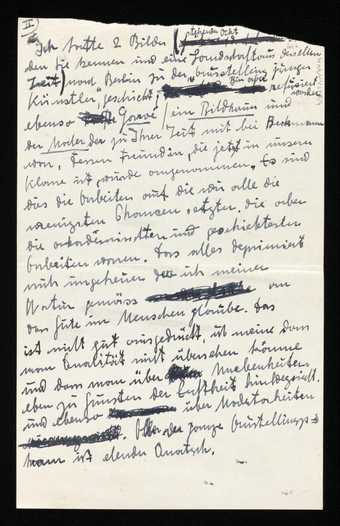 II)
Ich hatte 2 Bilder (stehender Akt
den Sie kennen und eine Landschaft aus derselben
Zeit) nach Berlin zu der "Ausstellung junger
Künstler" geschickt. Bin aber refüsiert
worden
ebenso Gowé, ein Bildhauer und
der Moder der zu Ihrer Zeit mit bei Beckmann
war. Dessen Freundin, die jetzt in unserer
Klasse ist wurde angenommen. Es sind
das die Arbeiten auf die wir alle die
wenigsten Chancen setzten, die aber
die ordentlichsten und geschicktesten
Arbeiten waren. Das alles deprimiert
mich ungeheuer da ich meiner
Natur gemäss an
das Gute im Menschen glaube. Das
ist nicht gut ausgedrückt, ich meine dass
man Qualität nicht übersehen könne
und dass man über Unebenheiten
eben zu Gunsten der hinwegsieht.
und ebenso über Modetorheiten
Aber der ganze Ausstellungs-
kram ist elender Quatsch.